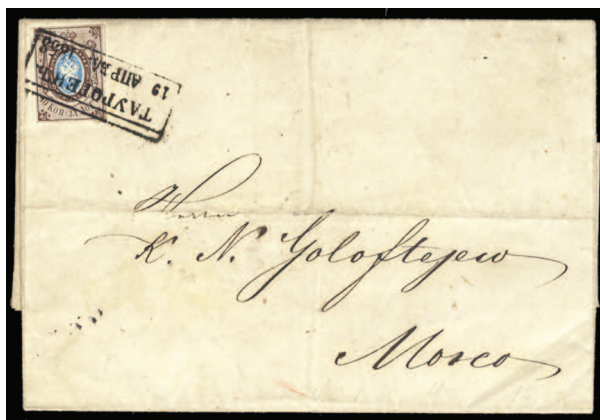 ТАУРОГЕНЪ
19 АПРѢЛ 1858
Herrn
K. N. Goloftejew
Mosco